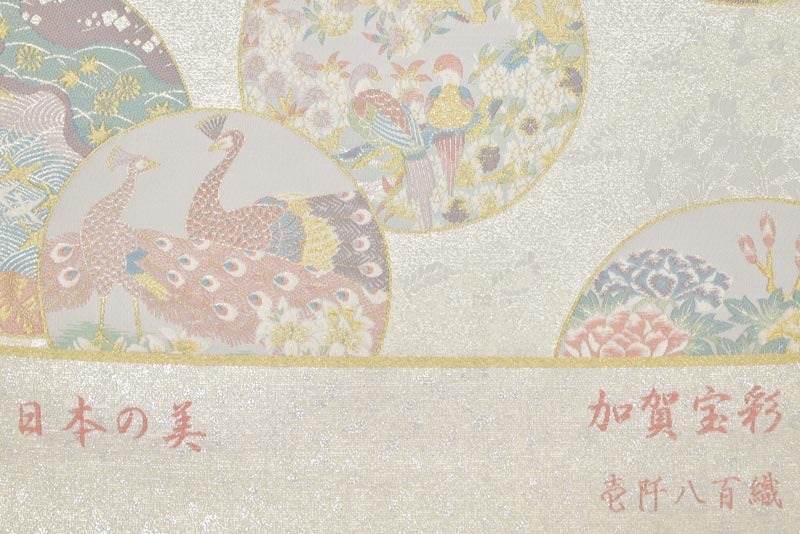 日本の美
加賀宝彩
壱阡八百織